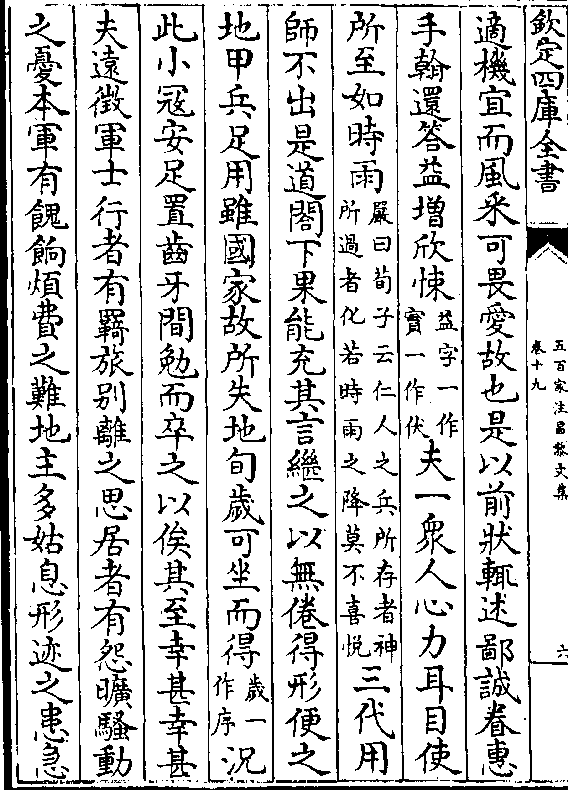 欽定四庫全書
五百家注昌黎文集
卷十九
六
適機宜而風采可畏愛故也是以前狀輒述鄙誠眷惠
手翰還答益增欣悚益字一作寳一作伏夫一衆人心力耳目使
所至如時雨嚴曰荀子云仁人之兵所存者神所過者化若時雨之降莫不喜悦三代用
師不出是道閣下果能充其言繼之以無倦得形便之
地甲兵足用雖國家故所失地旬歲可坐而得歲一作序况
此小冦安足置齒牙間勉而卒之以俟其至幸甚幸甚
夫遠徵軍士行者有羇旅别離之思居者有怨曠騷動
之憂本軍有餽餉煩費之難地主多姑息形迹之患急